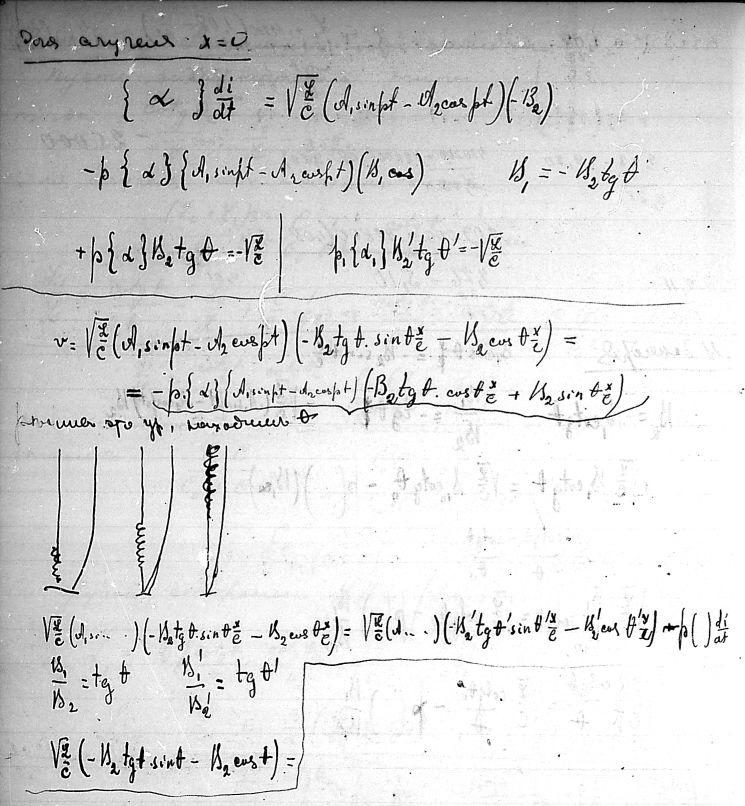 Для случая x=0
{ α } di/dt = √(L/C) (A₁ sin pt − A₂ cos pt)(−B₂)
−p{ α }{A₁ sin pt − A₂ cos pt)(B₁ cos)   B₁ = −B₂ tg θ
+p{α}B₂ tg θ = −√(L/C) | p₁{α₁}B₂′ tg θ′ = −√(L/C)
v = √(L/C) (A₁ sin pt − A₂ cos pt)(−B₂ tg θ · sin θ x/l − B₂ cos θ x/l) =
= −p{α}{A₁ sin pt − A₂ cos pt)(−B₂ tg θ · cos θ x/l + B₂ sin θ x/l)
это ур, находим θ
√(L/C) (A₁ sin . . . . )(−B₂ tg θ · sin θ x/l − B₂ cos θ x/l) = √(L/C) (A . . . )(−B₂′ tg θ′ sin θ′ x/l − B₂′ cos θ′ x/l) − p( ) di/dt
B₁/B₂ = tg θ   B₁′/B₂′ = tg θ′
√(L/C) (−B₂ tg θ · sin θ − B₂ cos θ) =